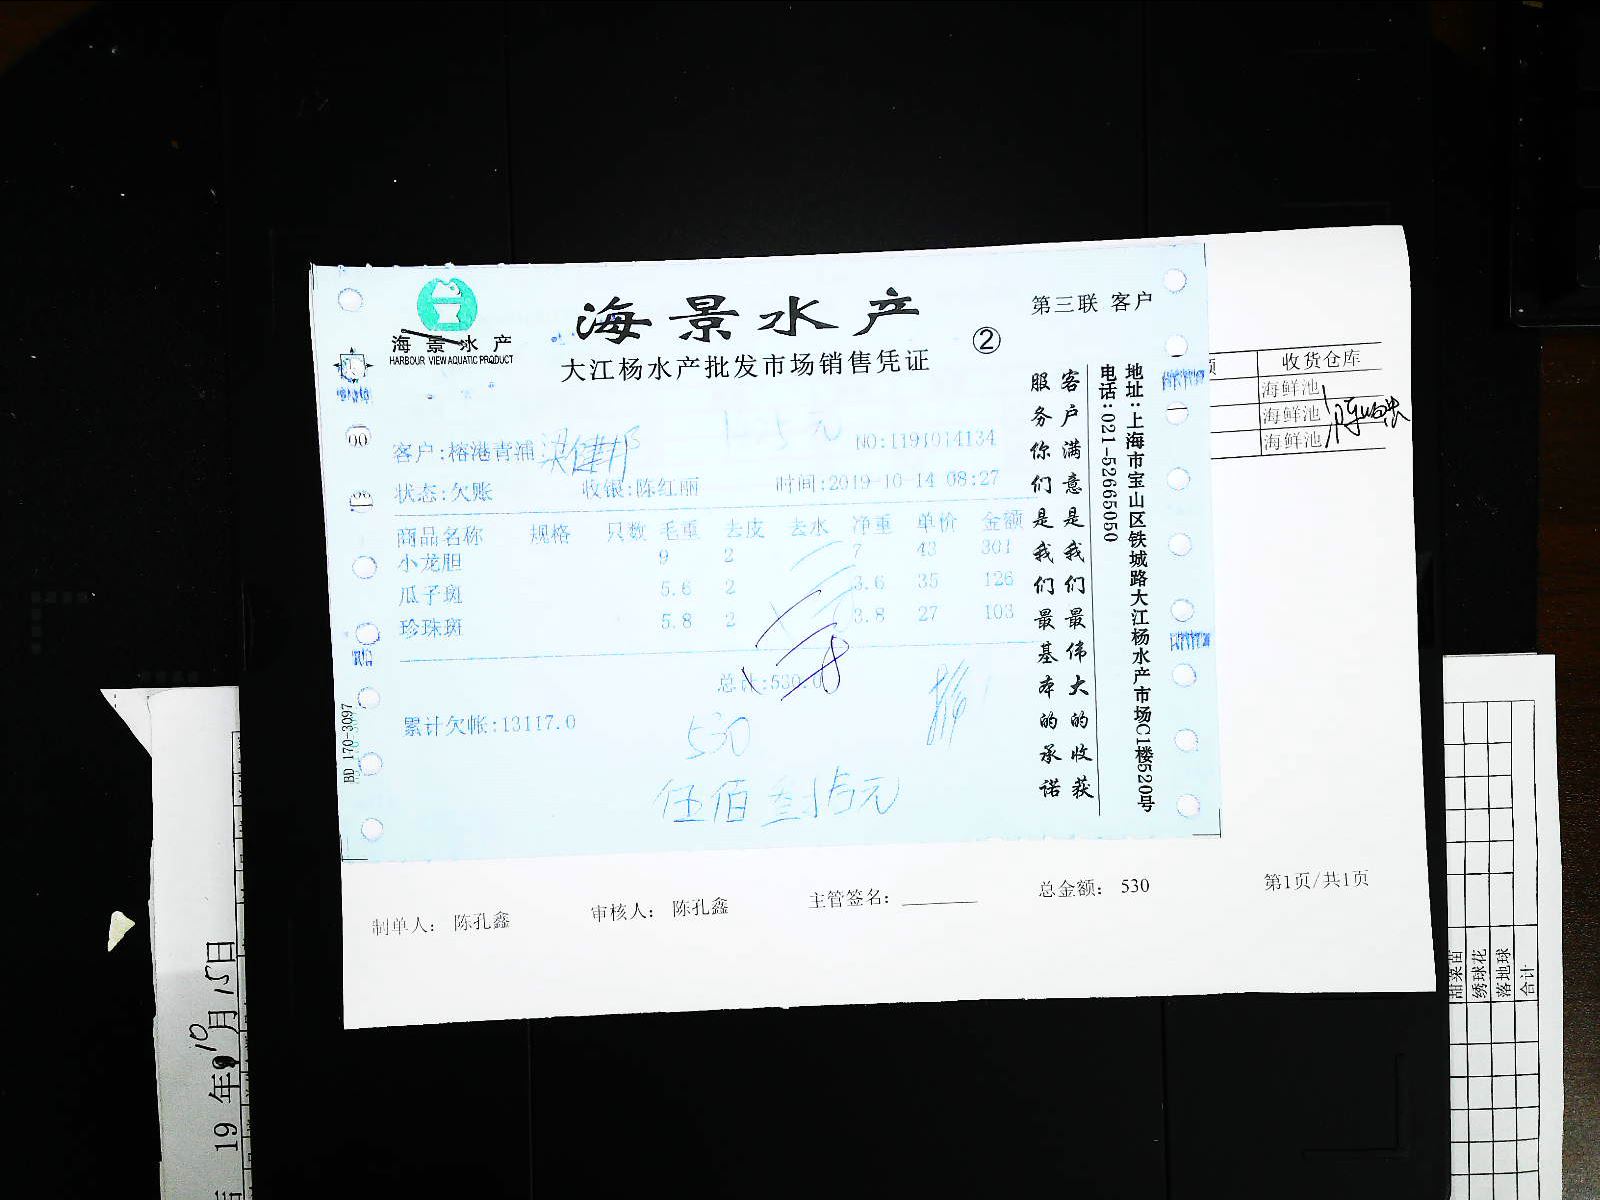 海景水产
HARBOUR VIEW AQUATIC PRODUCT
海景水产
大江杨水产批发市场销售凭证
②
第三联 客户
客户:榕港青浦 梁健邦
NO:1191014134
状态:欠账 收银:陈红丽 时间:2019-10-14 08:27
商品名称 规格 只数 毛重 去皮 去水 净重 单价 金额
小龙胆 9 2 7 43 301
瓜子斑 5.6 2 3.6 35 126
珍珠斑 5.8 2 3.8 27 103
总计:530.0
累计欠帐:13117.0
530
伍佰叁拾元
BD 170-3097
客户满意是我们最伟大的收获
服务你们是我们最基本的承诺
地址:上海市宝山区铁城路大江杨水产市场C1楼520号
电话:021-52665050
收货仓库
海鲜池
海鲜池
海鲜池
制单人: 陈孔鑫 审核人: 陈孔鑫 主管签名: 总金额: 530 第1页/共1页
19 年 10 月 15 日
甜菜苗
绣球花
落地球
合计